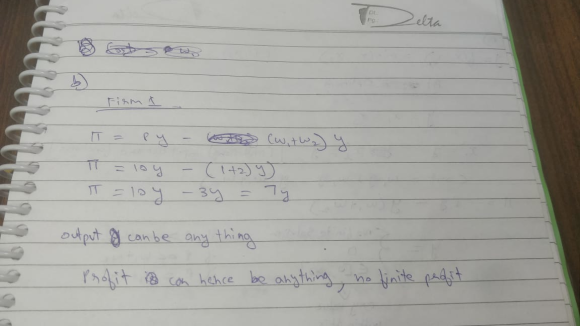 Delta
b)
Firm 1
π = Py - (w₁+w₂) y
π = 10y - (1+2)y)
π = 10y - 3y = 7y
output can be any thing
Profit can hence be anything, no finite profit